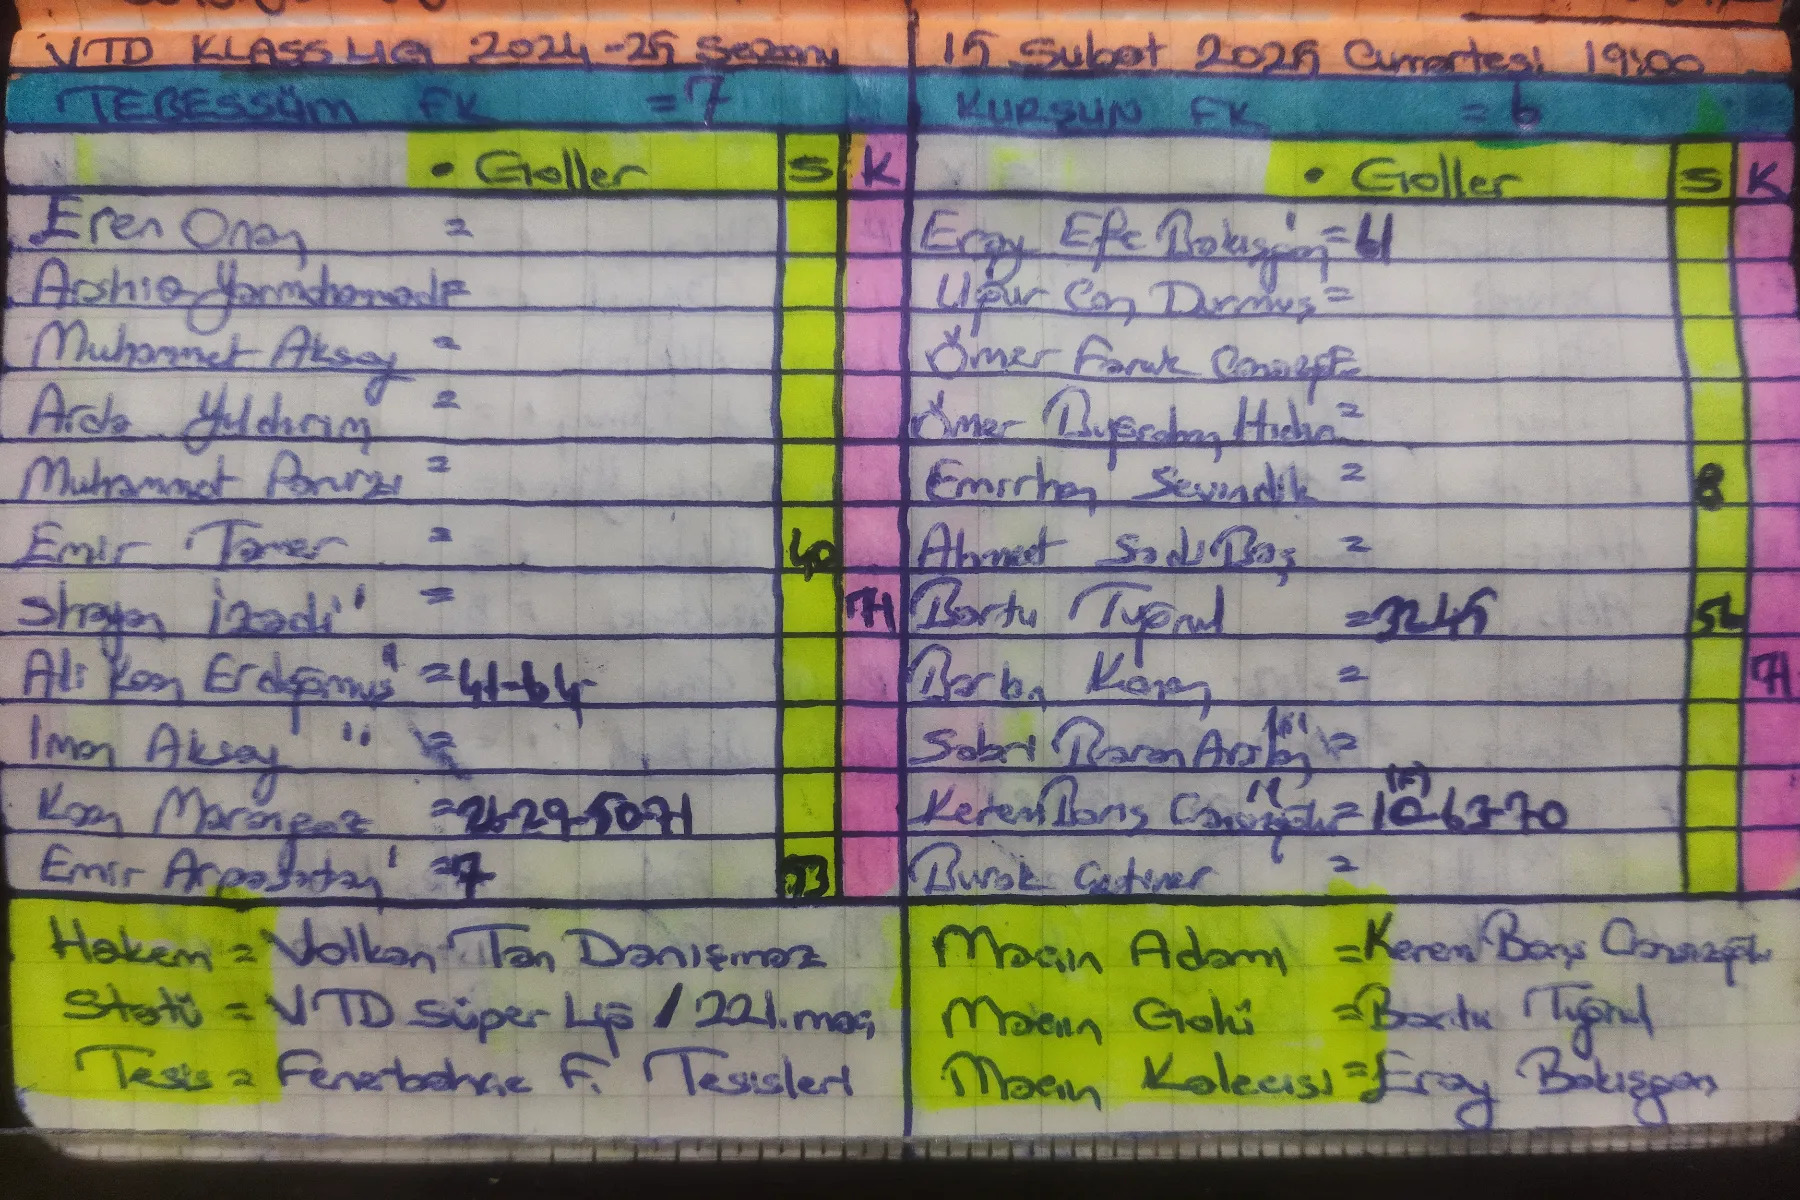 VTD KLASS LIG 2024-25 Sezonu
15 Şubat 2025 Cumartesi 19:00
TEBESSÜM FK = 7
KURŞUN FK = 6
• Goller S K
Eren Onay =
Arshia =
Muhammet Aksoy =
Arda Yıldırım =
Muhammet =
Emir Tamer = 40
Shayan İzadi ' = 71
Ali Kaan Erdoğmuş ' = 41-64
Iman Aksoy '' =
Kaan = 26-29-50-71
Emir Arpasatan ' = 7 73
• Goller S K
Eray Efe Bakışgan ' = 61
Uğur Can Durmuş =
Ömer Faruk Canözoğlu =
Ömer Buğrahan =
Emirhan Sevindik = 8
Ahmet Sadi Baş =
Bartu Tuğrul = 32-45 52
= 71
Sabri Baran =
Kerem Barış Canözoğlu '' = 10(P)-63-70
Burak =
Hakem = Volkan Tan Danışmaz
Statü = VTD Süper Lig / 221. maç
Tesis = Fenerbahçe F. Tesisleri
Maçın Adamı = Kerem Barış Canözoğlu
Maçın Golü = Bartu Tuğrul
Maçın Kalecisi = Eray Bakışgan